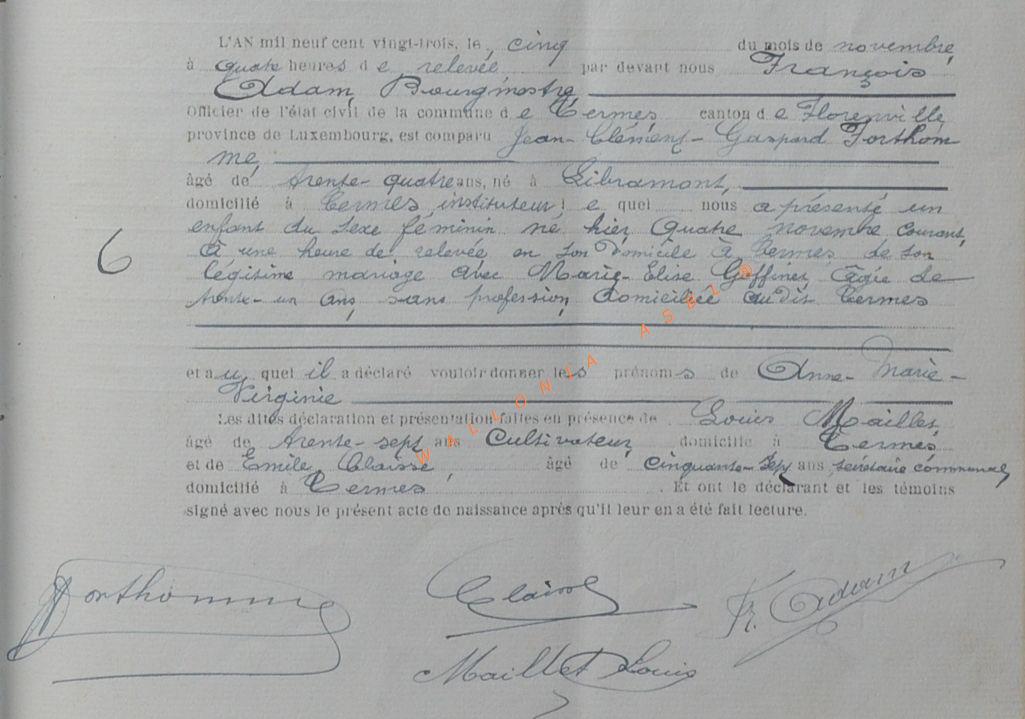 L'AN mil neuf cent vingt-trois, le cinq du mois de novembre,
à quatre heures de relevée, par devant nous François
Adam, Bourgmestre,
Officier de l'état civil de la commune de Termes, canton de Florenville,
province de Luxembourg, est comparu Jean-Clément-Gaspard Forthom
me,
âgé de trente-quatre ans, né à Libramont,
domicilié à Termes, instituteur, le quel nous a présenté un
enfant du sexe féminin né hier, quatre novembre courant,
à une heure de relevée, en son domicile à Termes de son
légitime mariage avec Marie-Elise Goffinet, âgée de
trente-un ans, sans profession, domiciliée au dit Termes
6
et au quel il a déclaré vouloir donner les prénoms de Anne-Marie-
Virginie
Les dites déclaration et présentation faites en présence de Louis Maillet,
âgé de trente-sept ans Cultivateur, domicilié à Termes
et de Emile, Claisse, âgé de cinquante-sept ans, secrétaire communal,
domicilié à Termes. Et ont le déclarant et les témoins
signé avec nous le présent acte de naissance après qu'il leur en a été fait lecture.
WALLONIA ASBL ©
Forthomme Claisse Fr. Adam
Maillet Louis